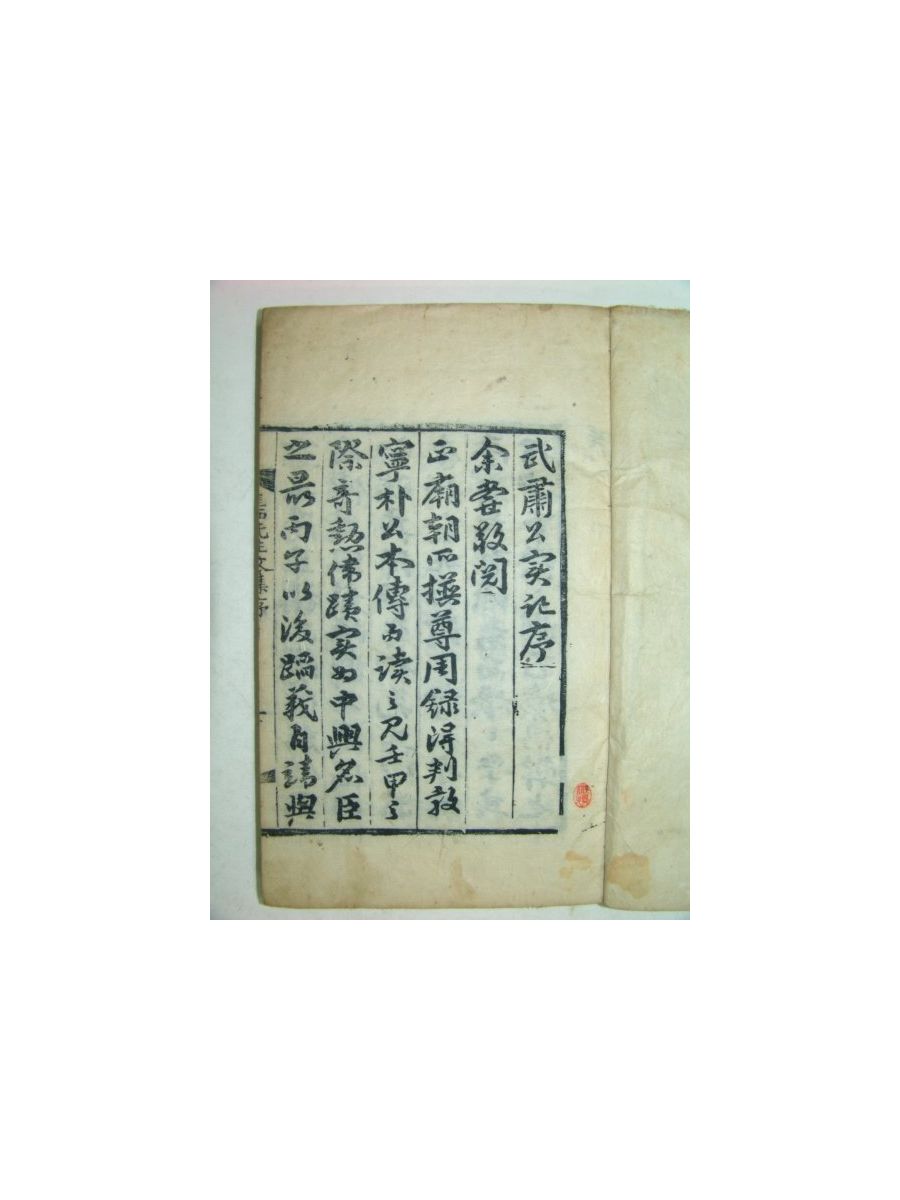 武肅公実記序
余嘗敬閱
正廟朝所撰尊周錄得判敦
寧朴公本傳而讀之見壬甲之
際奇勳偉蹟実為中興名臣
之最丙子以後蹈義自靖與
先生文集序